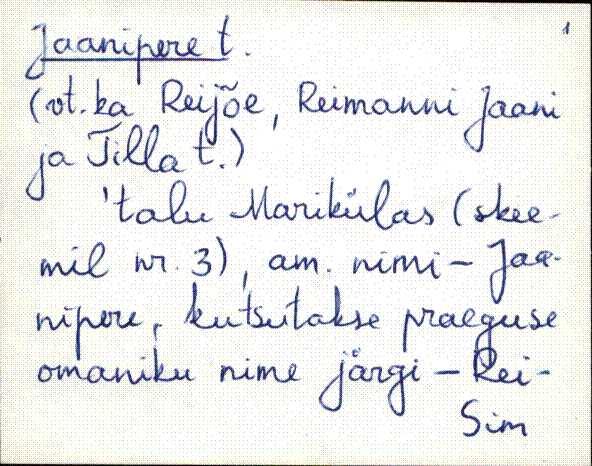 1
Jaanipere t.
(vt. ka Reijõe, Reimanni Jaani
ja Tilla t.)
'talu Marikülas (skee-
mil nr. 3), am. nimi – Jaa-
nipere, kutsutakse praeguse
omaniku nime järgi – Rei-
Sim